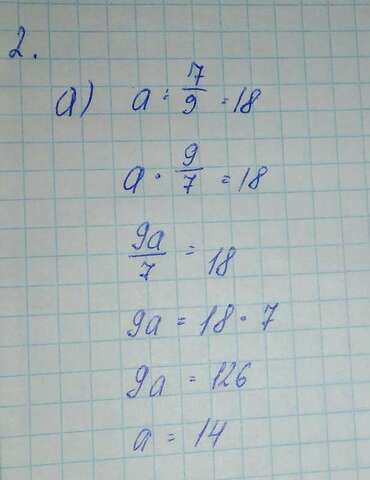 2.
а) a : 7/9 = 18
a · 9/7 = 18
9a/7 = 18
9a = 18 · 7
9a = 126
a = 14